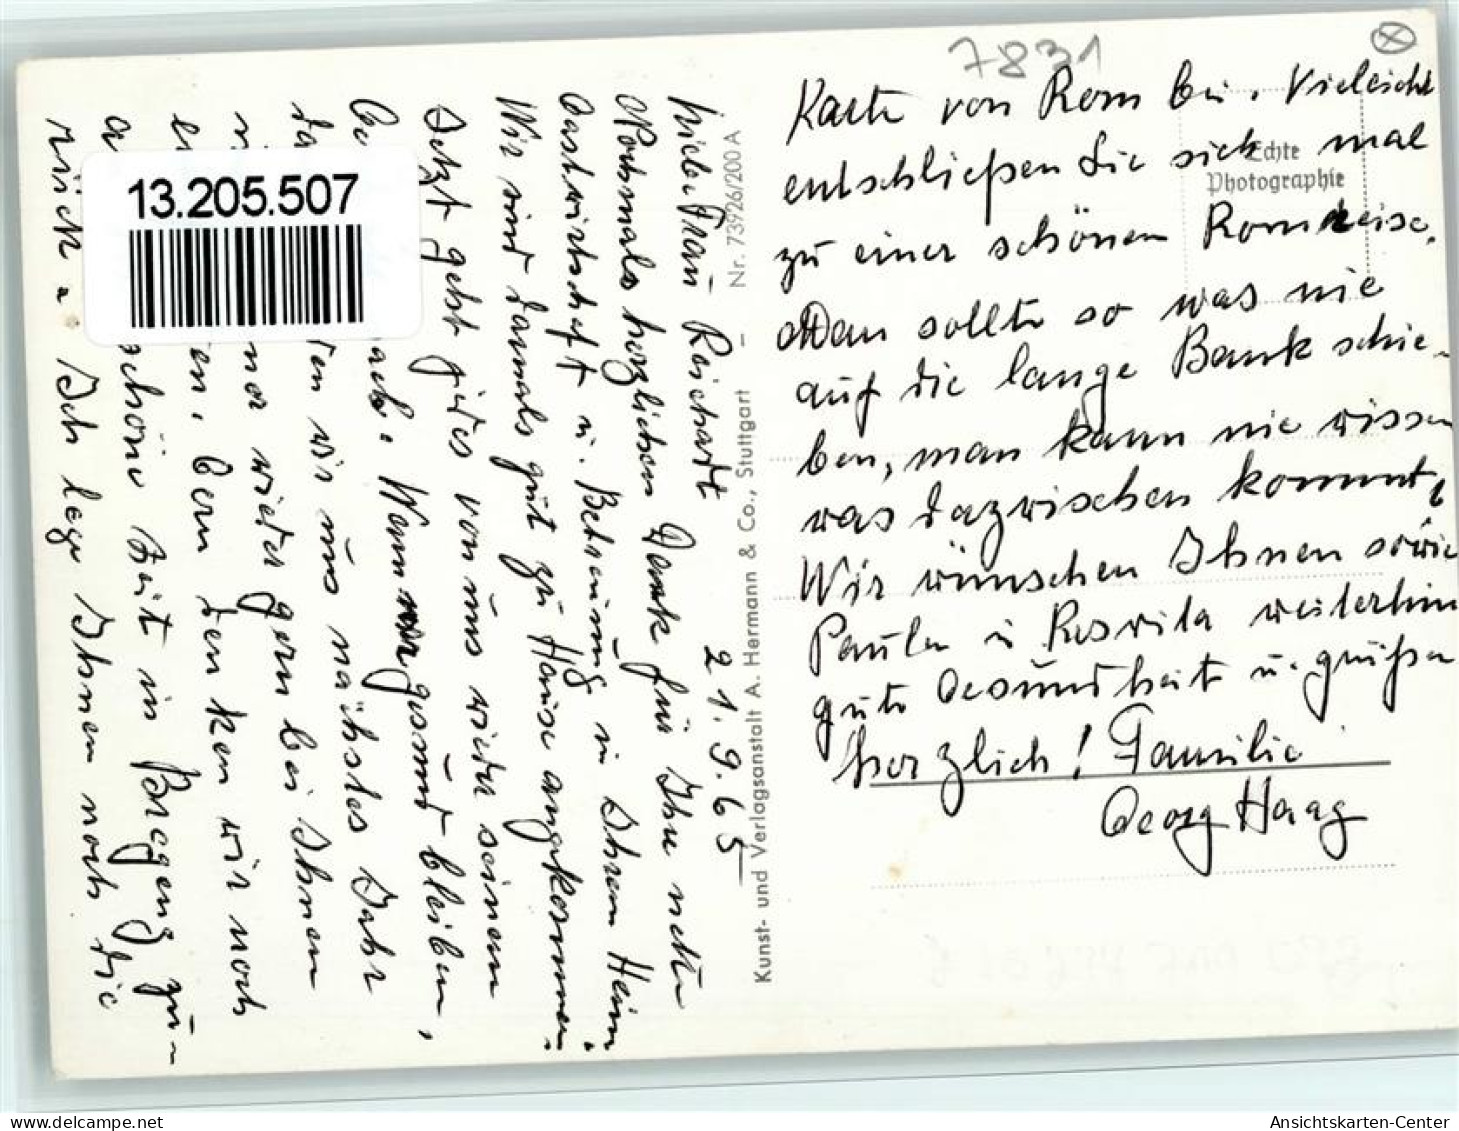 21.9.65
Liebe Frau Reichart
Nochmals herzlichen Dank für Ihre nette
Gastwirtschaft u. Betreuung in Ihrem Heim.
Wir sind damals gut zu Hause angekommen.
Jetzt geht jedes von uns wieder seinem
nach. Wenn wir gesund bleiben,
wir uns nächstes Jahr
wieder gern bei Ihnen
denken wir noch
schöne Zeit in Bregenz zu-
rück. Ich lege Ihnen noch die
Karte von Rom bei. Vieleicht
entschließen Sie sich mal
zu einer schönen Romreise.
Man sollte so was nie
auf die lange Bank schie-
ben, man kann nie wissen
was dazwischen kommt,
Wir wünschen Ihnen sowie
Paula u Roswita weiterhin
gute Gesundheit u. grüßen
herzlich! Familie
Georg Haag
7831
Echte
Photographie
Nr. 73926/200 A
Kunst- und Verlagsanstalt A. Hermann & Co., Stuttgart –
13.205.507
Ansichtskarten-Center